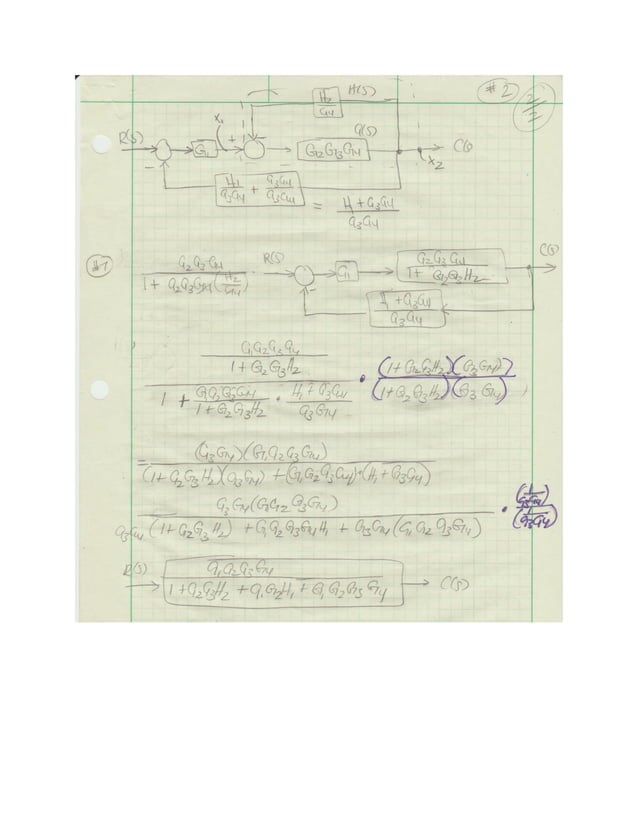 H2/G4 H(s) #2 2/2
R(s) G1 X1 + G(s) G2G3G4 C(s)
− − X2
H1/G3G4 + G3G4/G3G4 = H1+G3G4/G3G4
#7 G2G3G4/1 + G2G3G4(H2/G4) R(s) G1 G2G3G4/1 + G2G3H2 C(s)
− H1+G3G4/G3G4
G1G2G3G4/1+G2G3H2
1 + G1G2G3G4/1+G2G3H2 · H1+G3G4/G3G4 · (1+G2G3H2)(G3G4)/(1+G2G3H2)(G3G4)
= (G3G4)(G1G2G3G4)/(1+G2G3H2)(G3G4) + (G1G2G3G4)·(H1+G3G4)
G3G4(G1G2G3G4)/G3G4(1+G2G3H2) + G1G2G3G4H1 + G3G4(G1G2G3G4) · (1/G3G4)/(1/G3G4)
R(s) G1G2G3G4/1+G2G3H2+G1G2H1+G1G2G3G4 C(s)